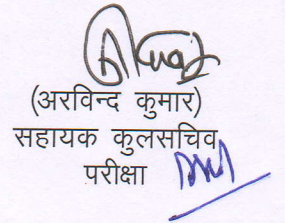 (अरविन्द कुमार)
सहायक कुलसचिव
परीक्षा